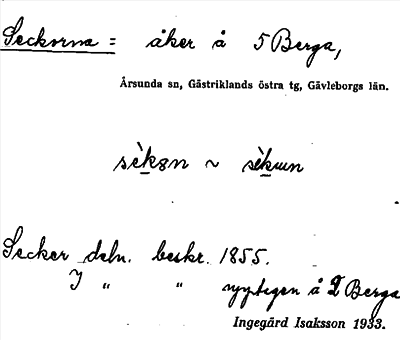 Seckorna = åker å 5 Berga,
Årsunda sn, Gästriklands östra tg, Gävleborgs län.
sèkɜn ~ sèkuun
Secker deln. beskr. 1855.
I " " upptagen å 2 Berga
Ingegärd Isaksson 1933.